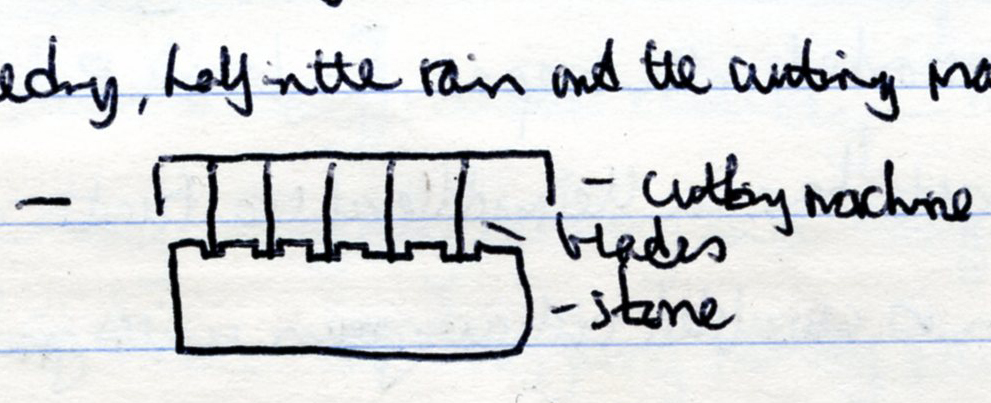 edry, half in the rain and the cutting ma
- cutting machine
blades
- stone